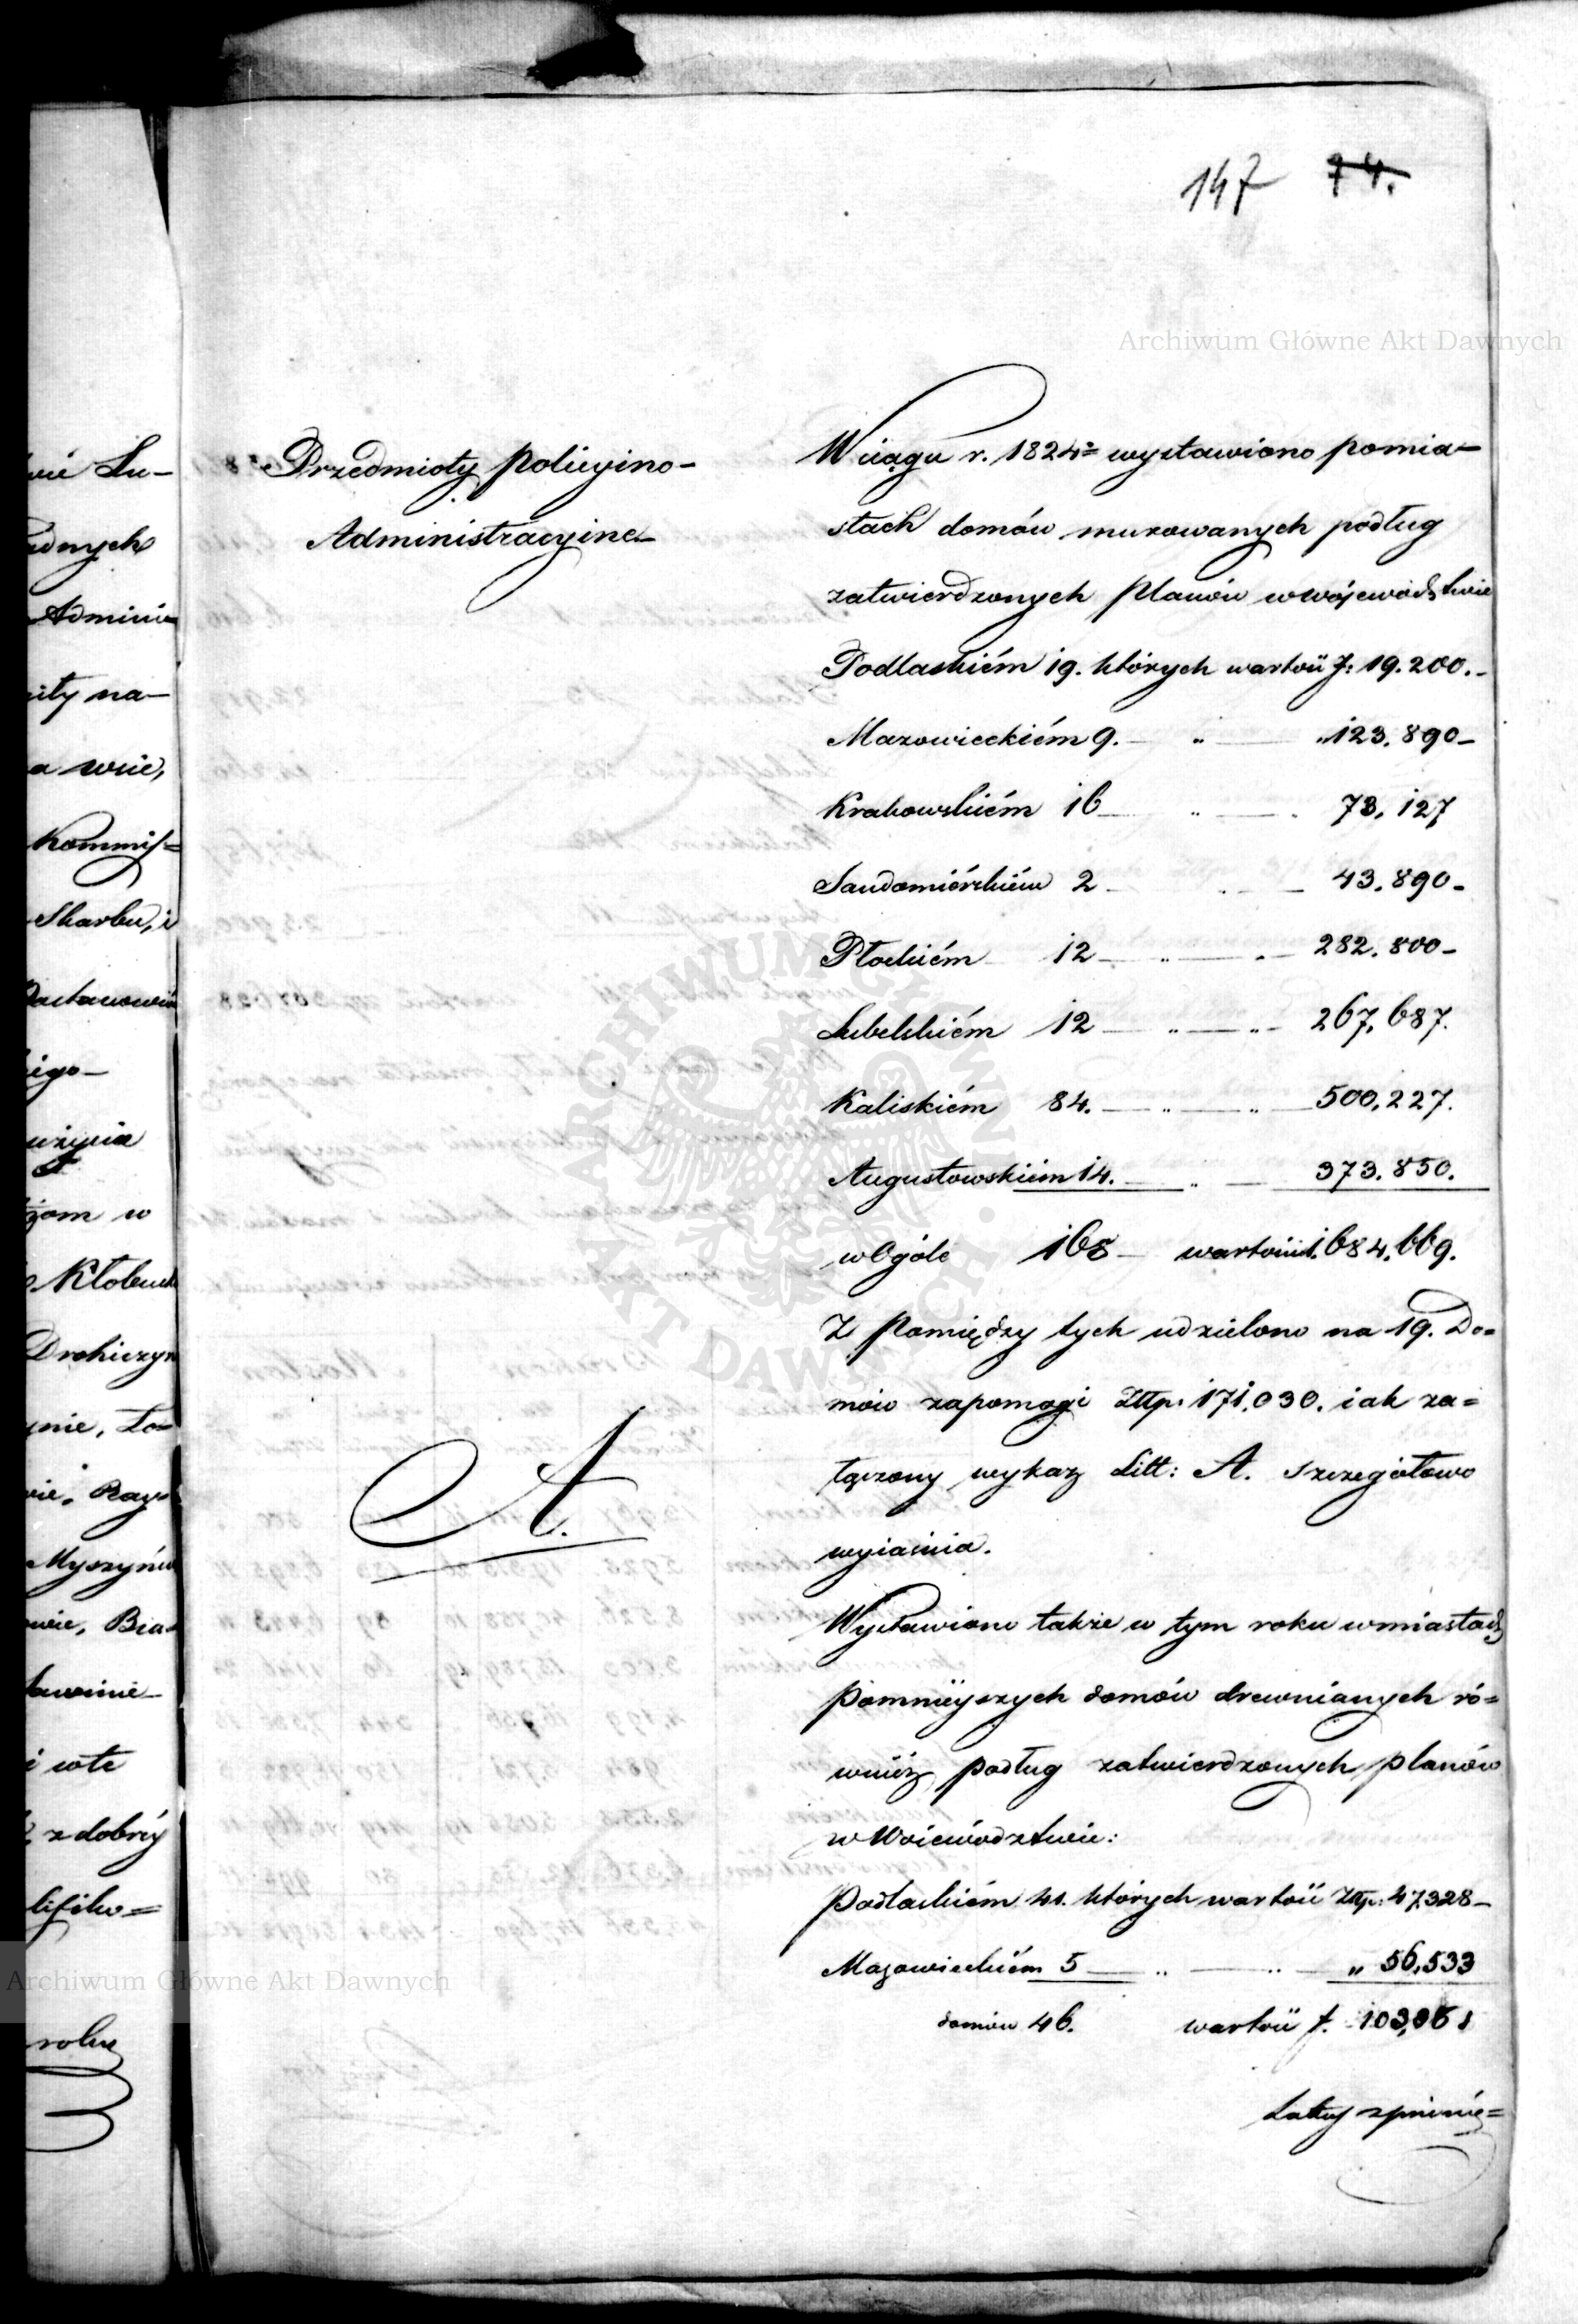 147 74.
Archiwum Główne Akt Dawnych
Przedmioty policyino-
Administracyine
W ciągu r. 1824 wystawiono pomia-
stach domów murowanych podług
zatwierdzonych planów w wojewodztwie
Podlaskiém 19. których wartość f: 19.200.-
Mazowieckiém 9. — " — " 123.890-
Krakowskiém 16 — " — 73.127
Sandomiérskiém 2 — — 43.890-
Płockiém 12 — " — " — 282.800-
Lubelskiém 12 — " — " — 267,687.
Kaliskiém 84. — " — " — 500,227.
Augustowskiém 14. — " — 373.850.
w Ogóle 168 — wartości 1.684,669.
Z pomiędzy tych udzielono na 19. Do=
mów zapomogi Złtp. 171,030. iak za=
łączony wykaz Litt: A. szczegółowo
wyiaśnia.
A.
Wystawiono także w tym roku w miastach
pomnieyszych domów drewnianych ró=
wnież podług zatwierdzonych planów
w Woiewództwie:
Podlaskiém 41. których wartość Złtp: 47,328-
Mazowieckiém 5 — " — " — " 56,533
domów 46. wartość f. 103,861
ARCHIWUM GŁÓWNE AKT DAWNYCH
wie Lu-
Admini
na-
a wsie,
Kommis=
Skarbu, i
użycia
w
Kłobucku
Drohiczyn
Bia-
i w te
z dobréy
Archiwum Główne Akt Dawnych
roku